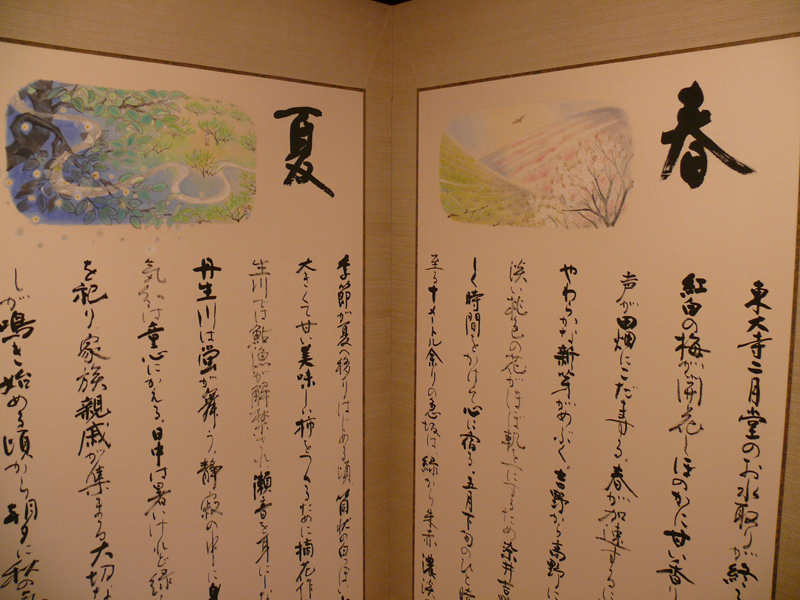 春
東大寺二月堂のお水取りが終
紅白の梅が開花しほのかに甘い香り
声が田畑にこだまする。春が加速する
やわらかな新芽がめぶく。吉野から高野に
淡い桃色の花がほぼ軌を一にするため染井吉
しく時間をかけて心に宿る。五月下旬のひと時
至る十メートル余りの急坂は、緑から朱赤、濃淡
夏
季節が夏へ移りはじめる頃、筒状の白っぽい
大きくて甘い美味しい柿をつくるために摘花作
生川では鮎漁が解禁され瀬音を耳にしな
丹生川は蛍が舞う。静寂の中に
気分は童心にかえる。日中は暑いけれど緑
を祀り、家族親戚が集まる大切な
しが鳴き始める頃から朝夕に秋の